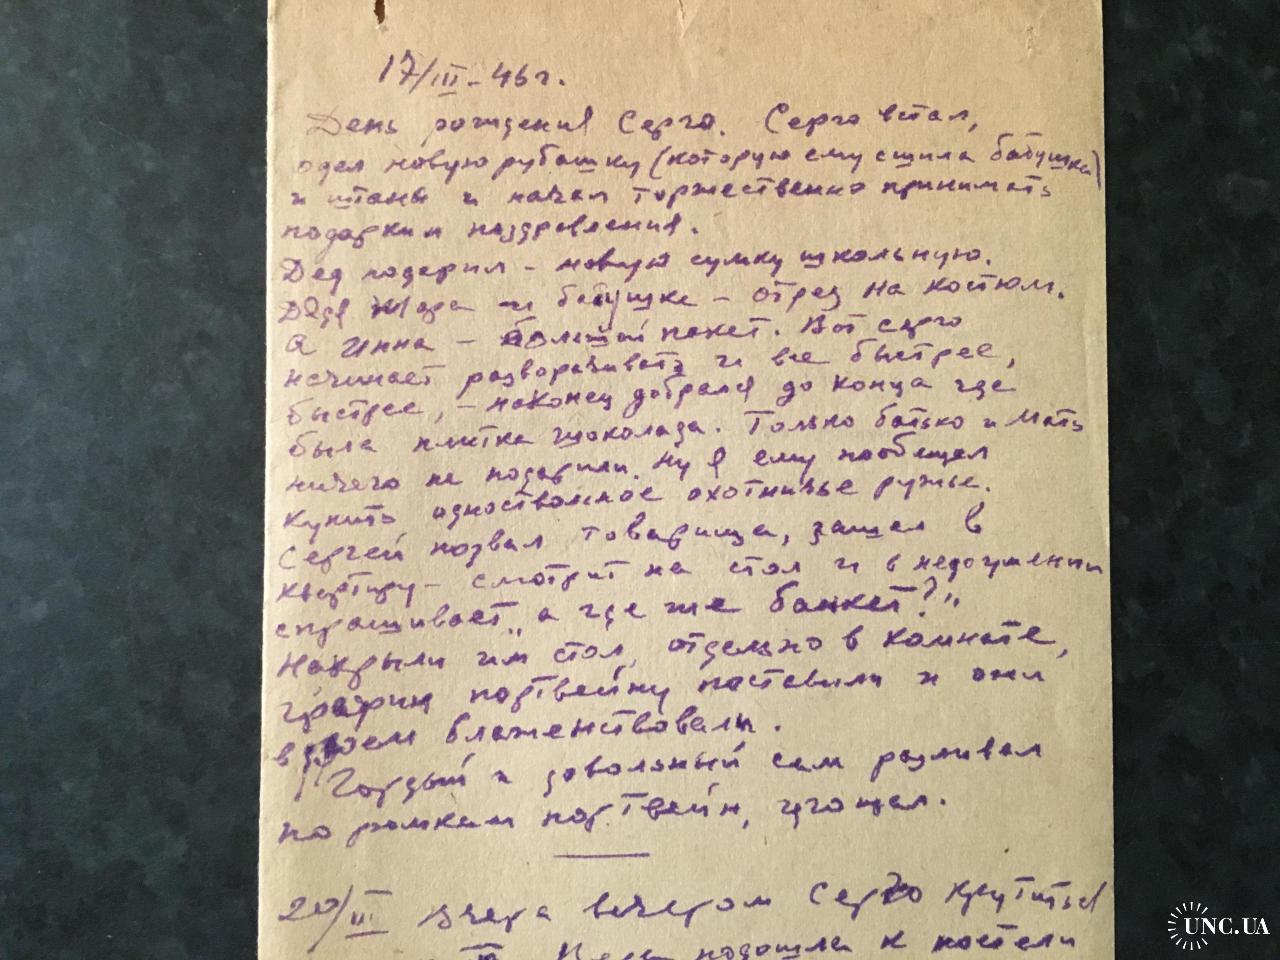 17/III-46г.
День рождения Серго. Серго встал,
одел новую рубашку (которую ему сшила бабушка)
и штаны и начал торжественно принимать
подарки и поздравления.
Дед подарил - новую сумку школьную.
Дядя Жора и бабушка - отрез на костюм.
А Инна - большой пакет. Вот Серго
начинает разворачивать и все быстрее,
быстрее, - наконец добрался до конца где
была плитка шоколада. Только батько и мать
ничего не подарили. Ну я ему пообещал
купить одноствольное охотничье ружье.
Сергей позвал товарища, зашел в
квартиру - смотрит на стол и в недоумении
спрашивает „а где же банкет?"
Накрыли им стол, отдельно в комнате,
графин портвейну поставили и они
вдвоем блаженствовали.
Гордый и довольный сам разливал
по рюмкам портвейн, угощал.
20/III Вчера вечером Серго крутится
подошла к постели
UNC.UA